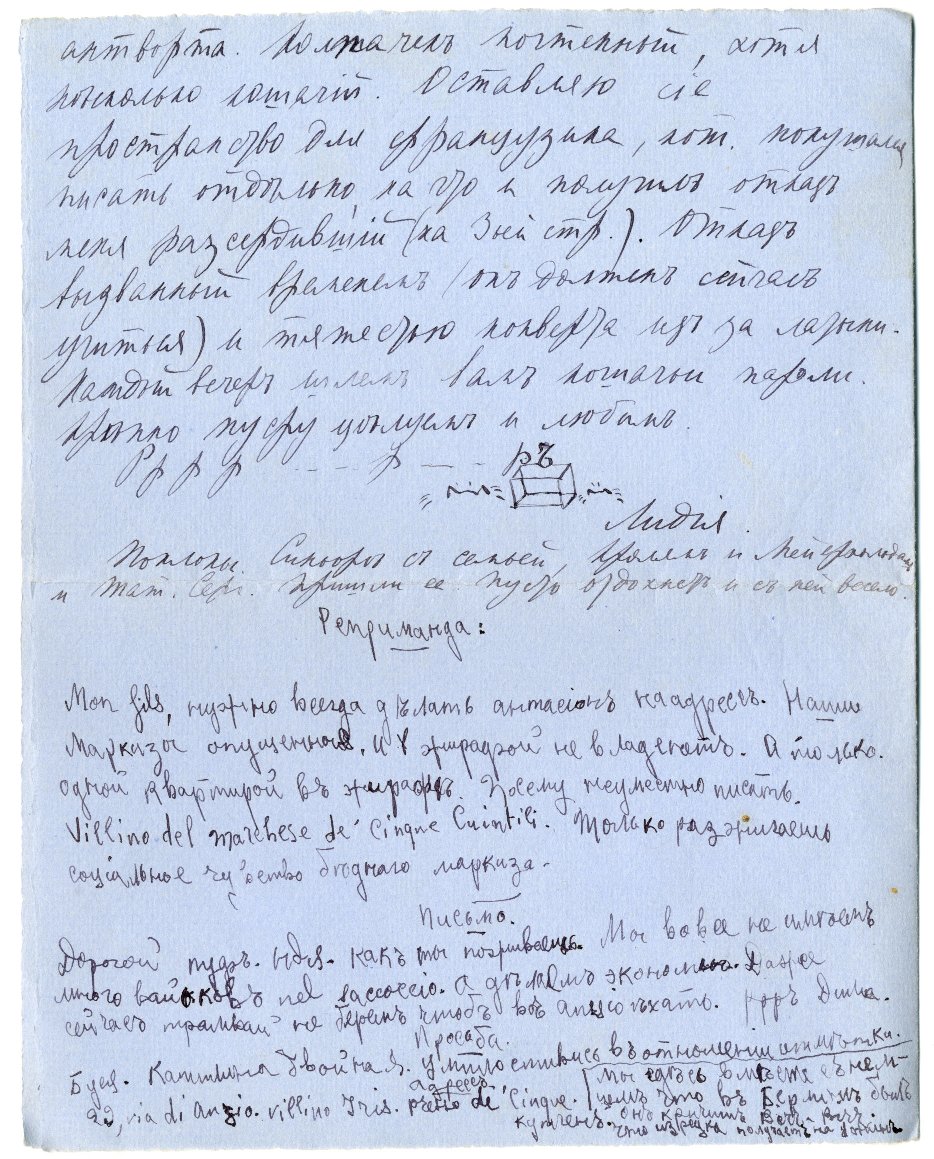 антворта. Колпачекъ почтенный, хотя
нѣсколько кошачiй. Оставляю сiе
пространство для французика, кот. покушался
писать отдѣльно, на что и получилъ отказъ
меня разсердившiй (на 3ьей стр.). Отказъ
вызванный временемъ (онъ долженъ сейчасъ
учиться) и тяжестью конверта изъ за латыни.
Каждый вечеръ шлемъ вамъ кошачьи пароли.
Крѣпко пузру цѣлуемъ и любимъ.
Р р р р - - - - р - - - - ръ
Лидiя.
Поклоны. Синьоры съ семьей, и
и Тат. Серг. Пришли ее. Пусть отдохнетъ и съ ней весело.
Реприманда:
Mon fils, нужно всегда дѣлать антасiонъ на адресъ. Наши
маркизы опущенные, и жирафой не владеютъ. А только
одной квартирой въ жирафѣ. Посему неумѣстно писать.
Villino del marchese de' Cinque Cuintili. Только разжигаешь
соцiальное чувство бѣднаго маркиза.
Письмо.
Дорогой пудръ. какъ ты поживаешь. Мы вовсе не имѣемъ
много nel sacoccio. А дѣлаемъ экономiю. Даже
сейчасъ трамвай не беремъ чтобъ въ ѣхать. ррръ Дима.
Просьба.
Буся. Катинина двойная. Умилостивись въ отношенiи отмѣтки.
адресъ
22, via di Anzio. villino Iris. presso de' Cinque. Мы здѣсь вмѣстѣ съ нем-
цемъ что въ Берлинѣ былъ
купленъ. Онъ кричитъ
что изрѣдка получаетъ на ужинъ